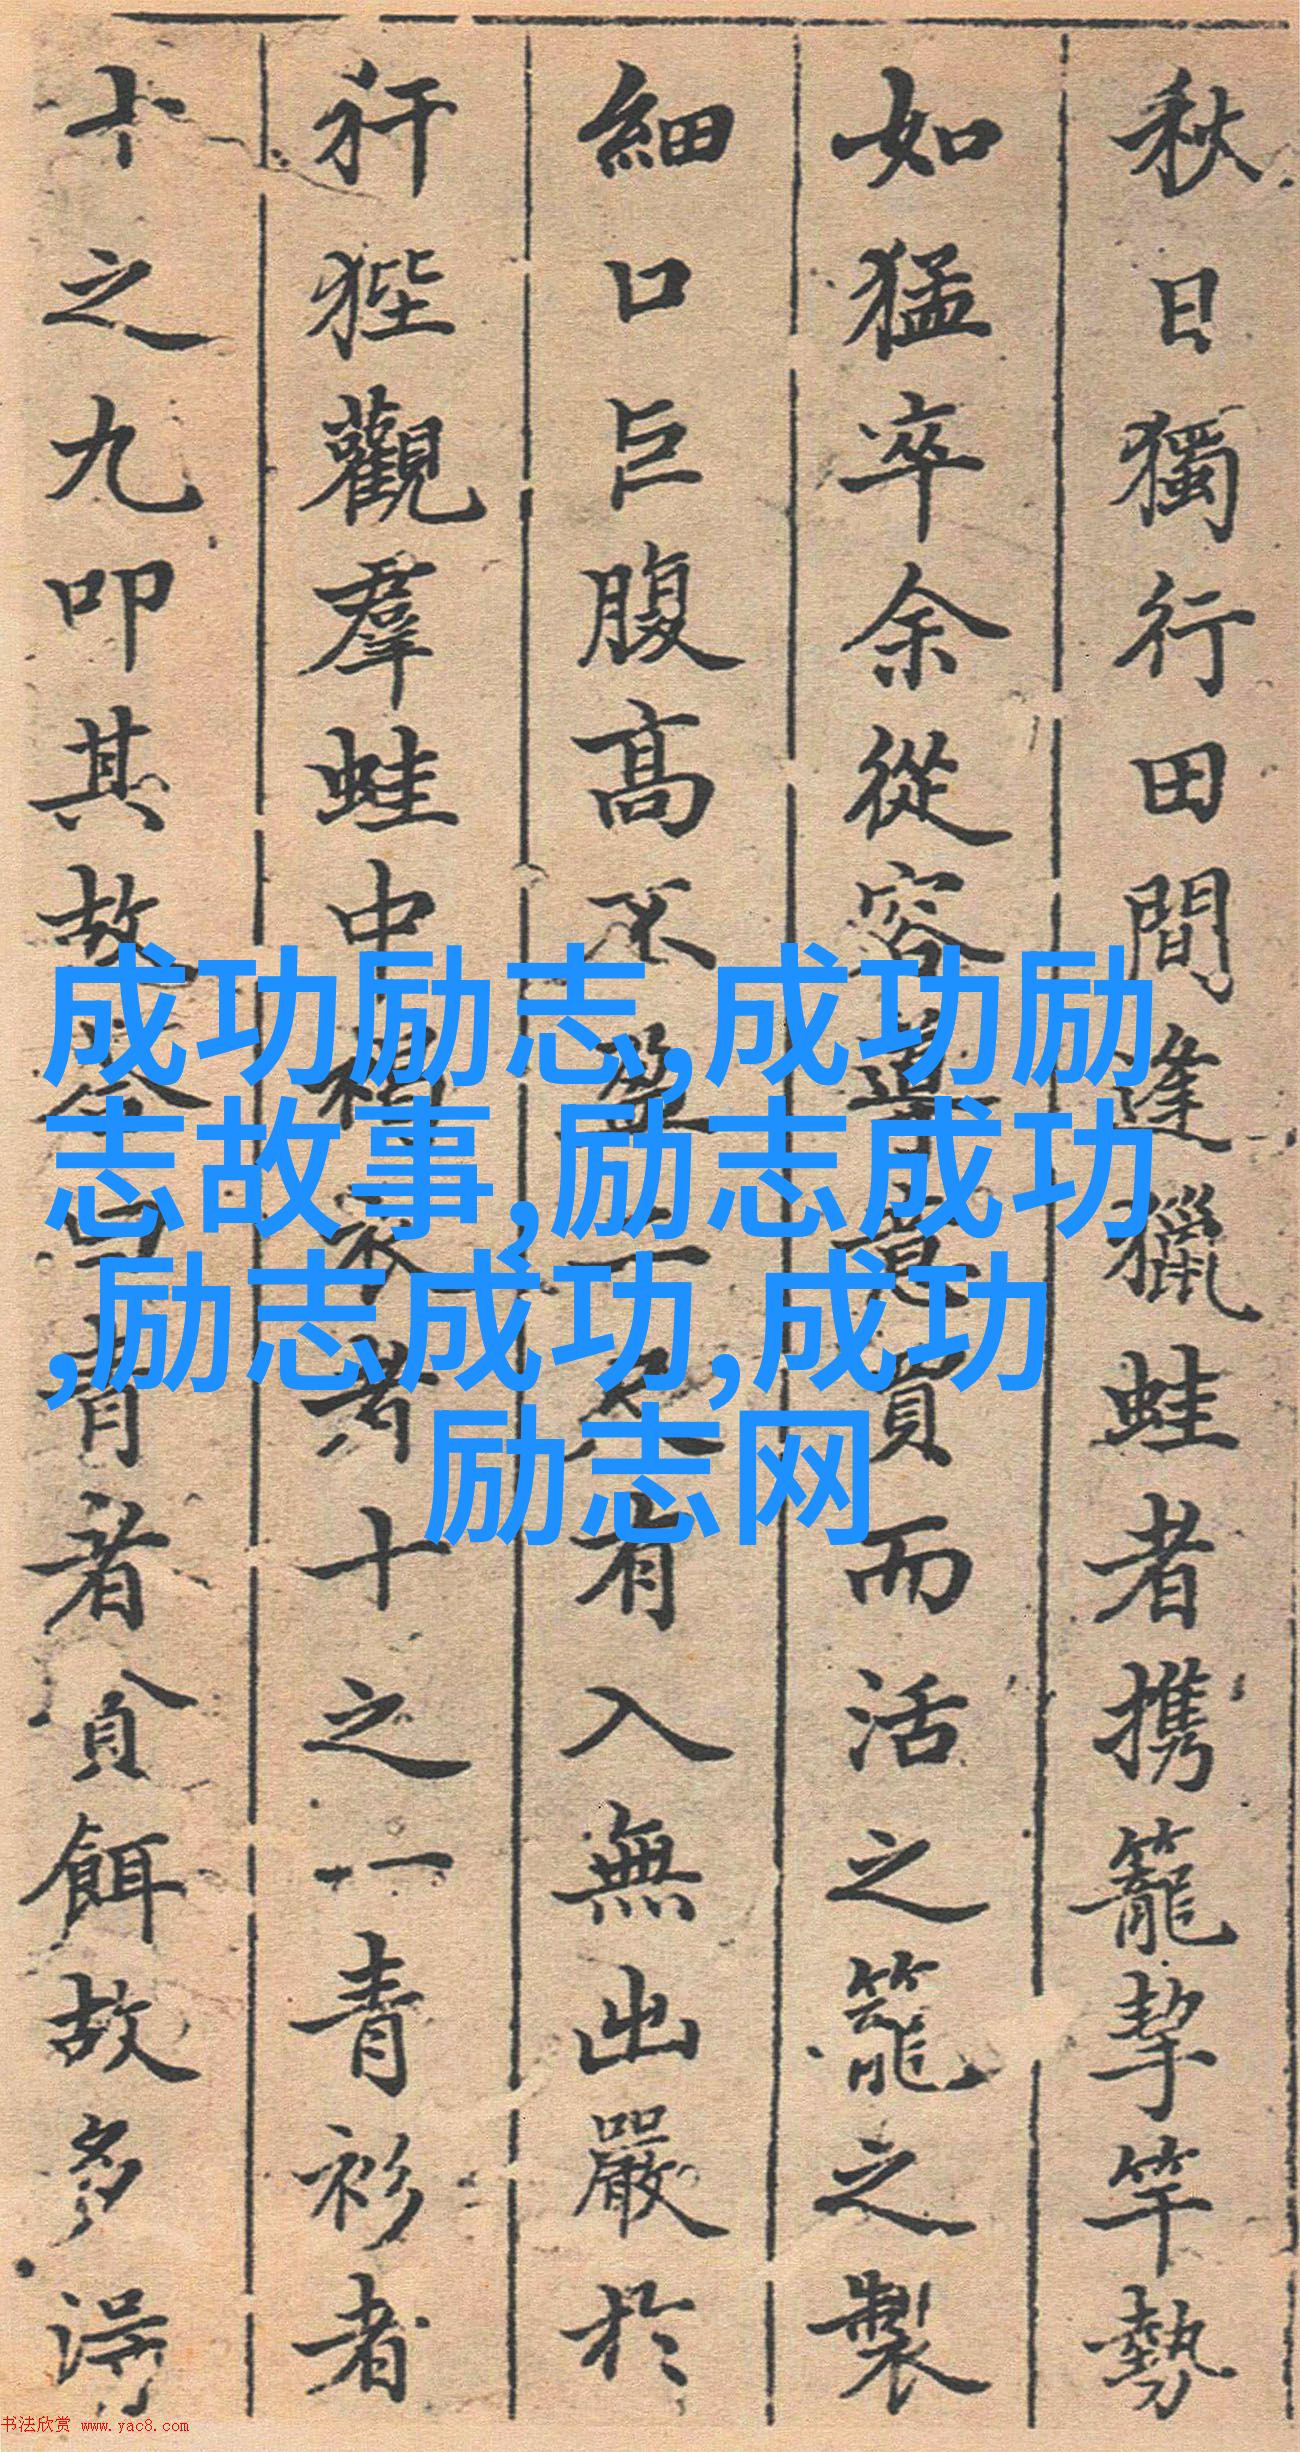 秋日獨行田間逢獵蛙者携籠挈竿勢
如猛卒余從容導意質而活之籠之製
細口巨腹高不盈二尺有入無出嚴於
犴狴觀羣蛙中褐衣者十之一青衫者
十之九叩其故答曰青者貪餌故多得
成功励志,成功励
志故事,励志成功
,励志成功,成功
励志网
书法欣赏 www.yac8.com